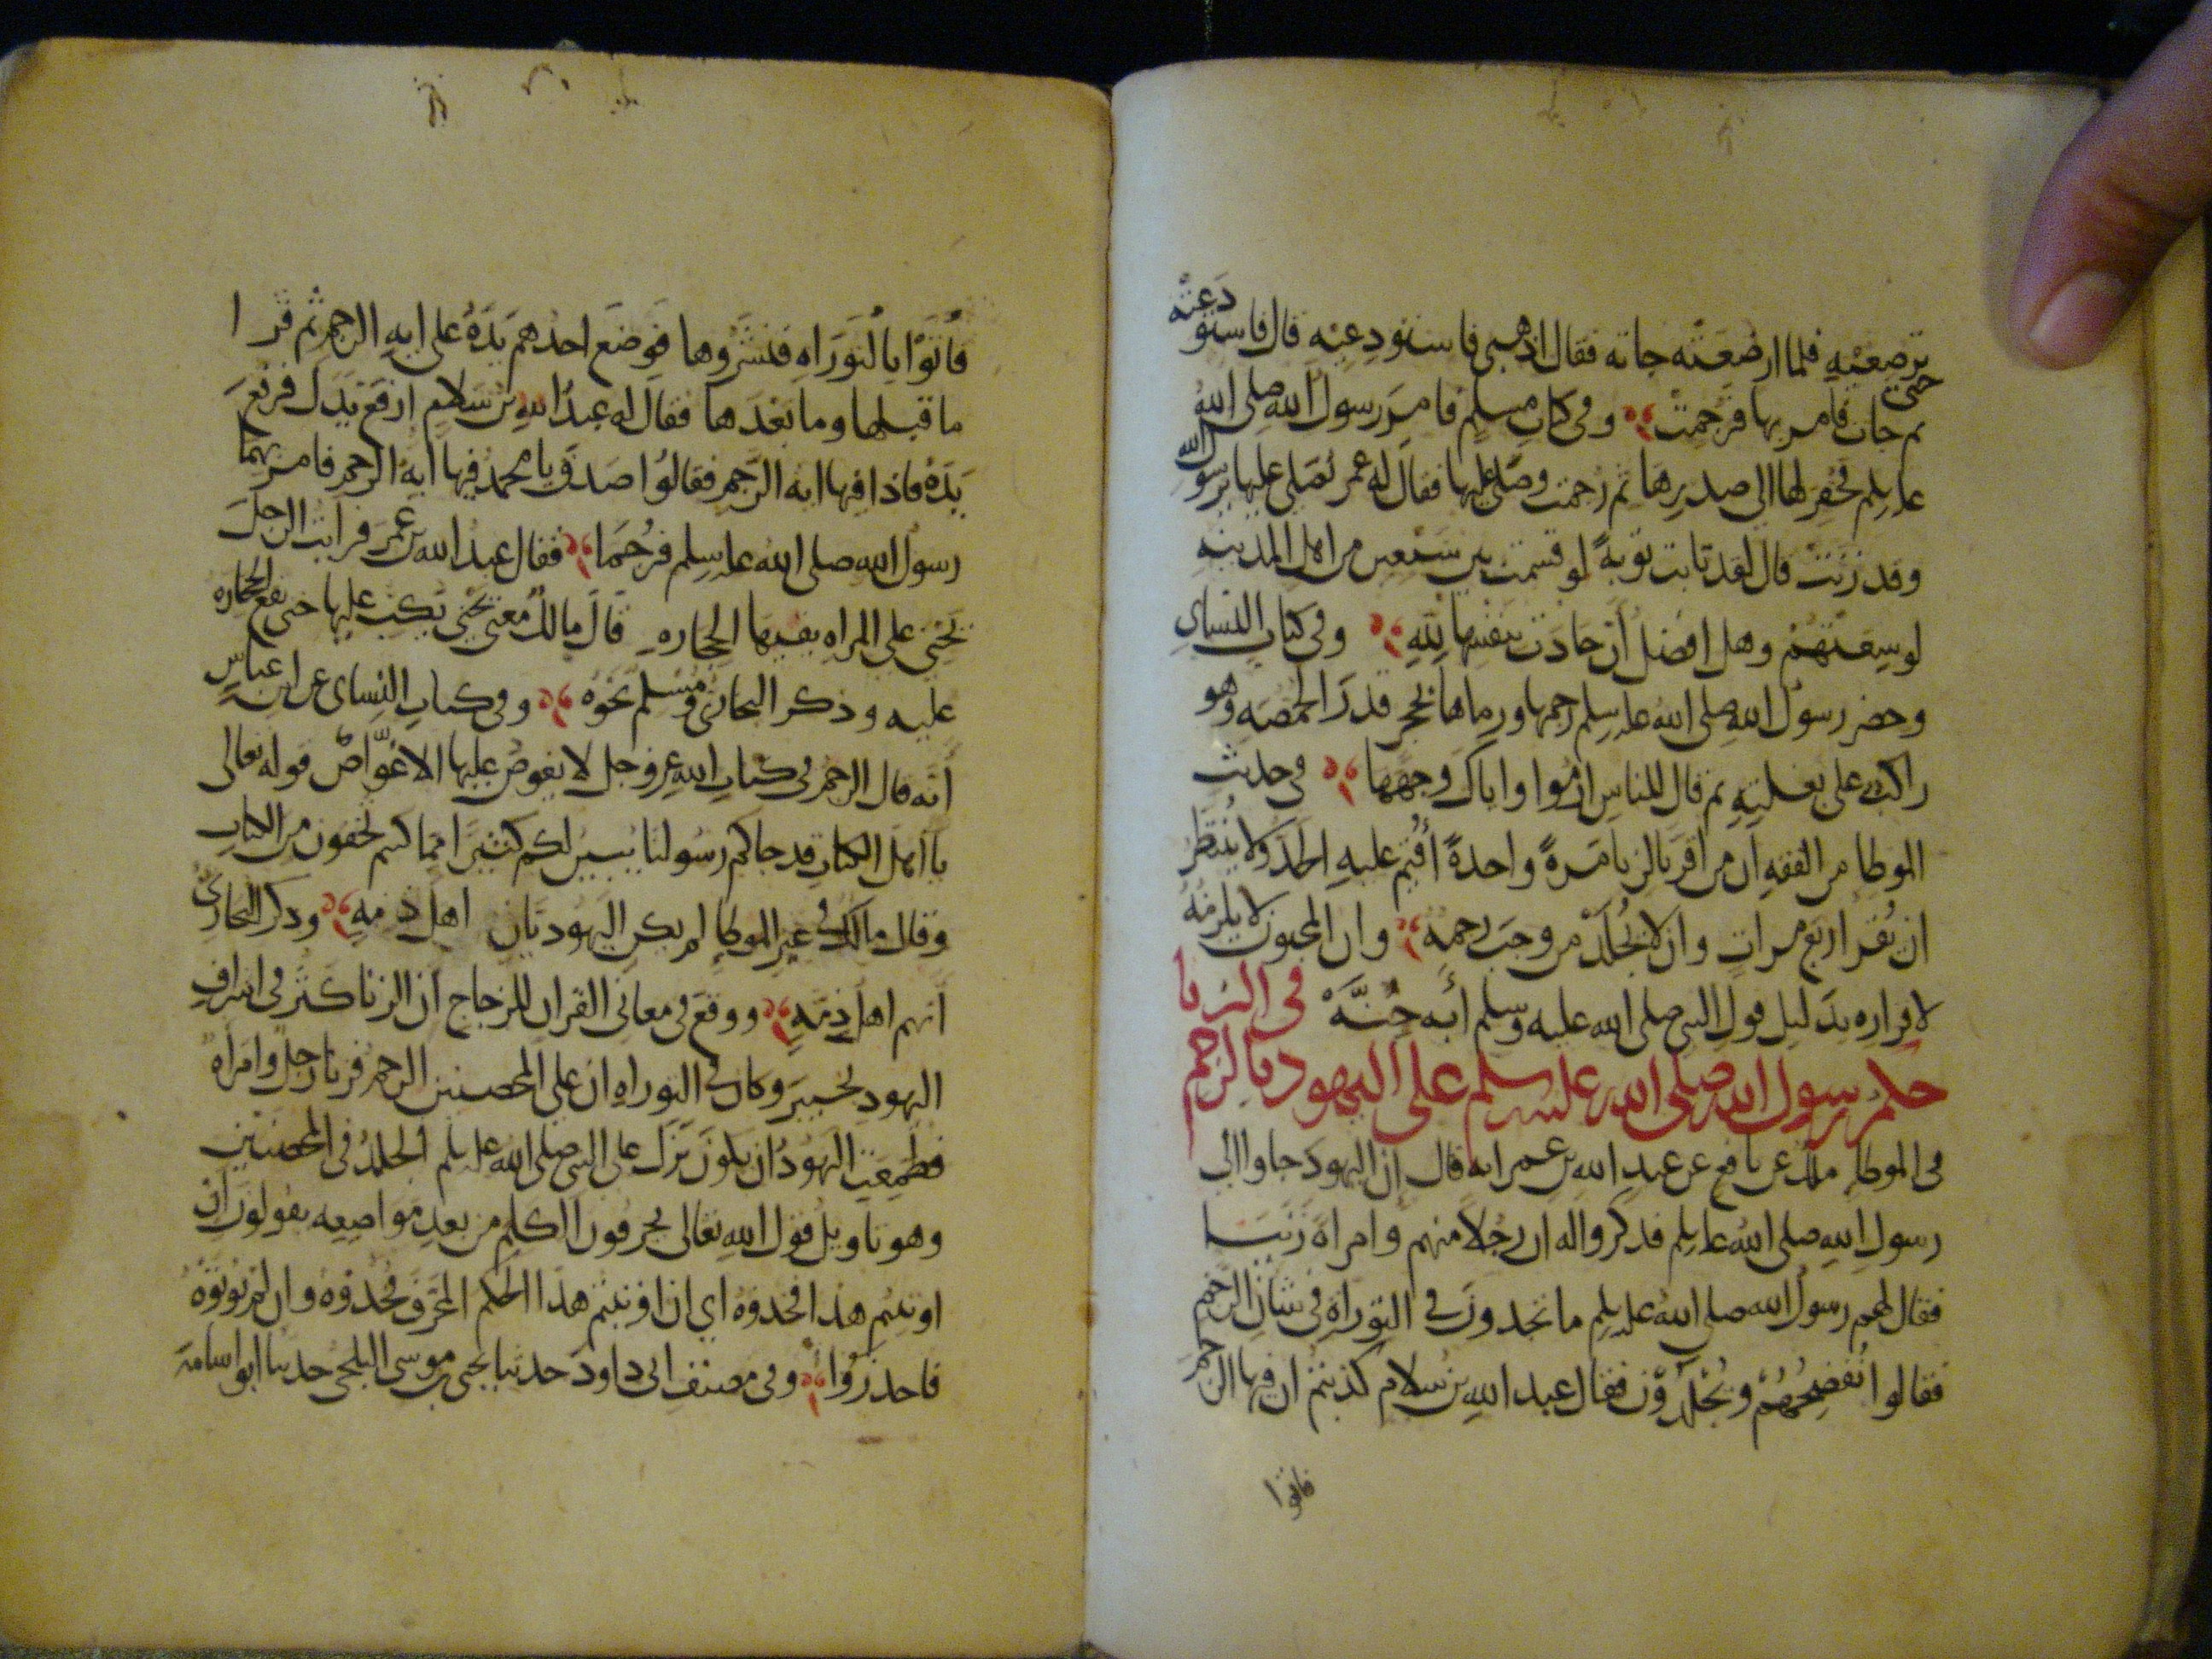 ترضعيه فلما ارضعته جاته فقال اذهبي فاستودعيه قال فاستودعته
ثم جات فامر بها فرجمت وفي كتاب مسلم فامر رسول الله صلى الله
عليه سلم فحفر لها الى صدرها ثم رجمت وصلى عليها فقال له عمر تصلى عليها يرسول الله
وقد زنت قال لقد تابت توبةً لو قسمت بين سبعين من اهل المدينه
لوسعتهم وهل افضل ان جادت بنفسها لله وفي كتاب النساي
وحضر رسول الله صلى الله عليه سلم رجمها ورماها بحجر قدر الحمصه وهو
راكب على بغلته ثم قال للناس ارموا واياك وجهها في حديث
الموطا من الفقه ان من اقر بالزنا مرةً واحدةً أقيم عليه الحد ولا يُنتظر
ان يقر اربع مرات وان لا يُجلد من وجب رجمه وان المجنون لا يلزمه
لاقراره بدليل قول النبي صلى الله عليه وسلم أبه جِنَّة
حكم رسول الله صلى الله عليه سلم على اليهود بالرجم في الزنا
في الموطا ملك عن نافع عن عبد الله بن عمر انه قال إن اليهود جاوا الى
رسول الله صلى الله عليه سلم فذكروا له ان رجلا منهم وامراة زنيا
فقال لهم رسول الله صلى الله عليه سلم ما تجدون في التوراة في شان الرجم
فقالوا نفضحهم ويُجلدون فقال عبد الله بن سلام كذبتم ان فيها الرجم
فاتوا
فاتوا بالتوراه فنشروها فوضع احدهم يده على ايه الرجم ثم قرا
ما قبلها وما بعدها فقال له عبد الله بن سلام ارفع يدك فرفع
يده فاذا فيها ايه الرجم فقالوا صدق يا محمد فيها اية الرجم فامر بهما
رسول الله صلى الله عليه سلم فرُجما فقال عبد الله بن عمر فرايت الرجل
يحني على المراه يقيها الحجاره قال مالك معنى يحني يكب عليها حتى تقع الحجاره
عليه وذكر البخاري ومسلم نحوه وفي كتاب النساي عن ابن عباس
أنه قال الرجم في كتاب الله عز وجل لا يغوص عليها الا غوّاص قوله تعالى
يا اهل الكتاب قد جاكم رسولنا يبين لكم كثيرا مما كنتم تخفون من الكتاب
وقال مالك في غير الموطا لم يكن اليهوديان اهل ذمه وذكر البخاري
أنهم اهل ذمةٍ ووقع في معاني القران للزجاج ان الزنا كثر في اشراف
اليهود بخيبر وكان في التوراه ان على المحصنين الرجم فزنا رجل وامراه
فطمعت اليهود ان يكون نزل على النبي صلى الله عليه سلم الجلد في المحصنين
وهو تاويل قول الله تعالى يحرفون الكلم من بعد مواضعه يقولون ان
اوتيتم هذا فخذوه اي ان اوتيتم هذا الحكم المحرف فخذوه وان لم توتوه
فاحذروا وفي مصنف ابي داود حدثنا يحيى بن موسى البلخي حدثنا ابو اسامة